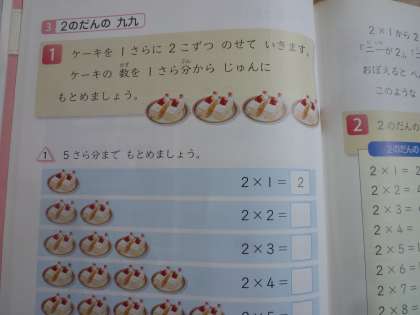 3 2のだんの 九九
1 ケーキを 1さらに 2こずつ のせて いきます。
ケーキの 数を 1さら分から じゅんに
もとめましょう。
1 5さら分まで もとめましょう。
2×1=2
2×2=
2×3=
2×4=
2×1から2
おぼえると
このような
2 2のだんの
2のだんの
2×1=2
2×2=
2×3=
2×4=
2×5=
2×6=
2×7=
2×8=